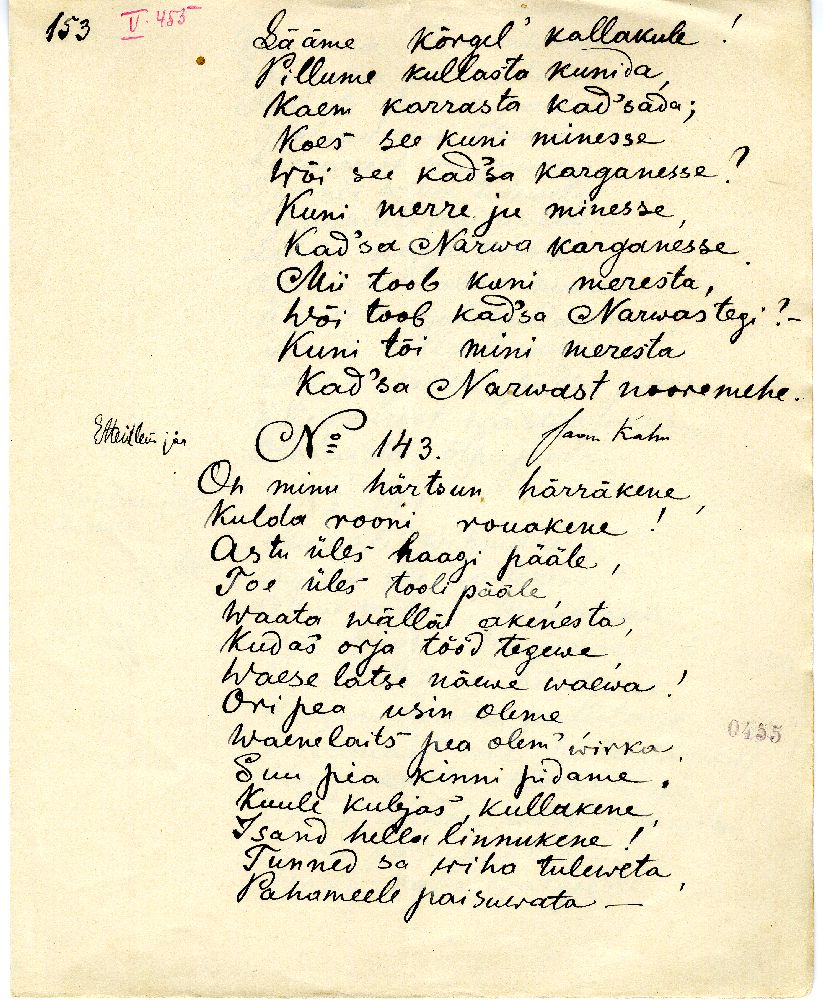 153 V. 455
Lääme kõrgel' kallakule!
Pillume kullasta kunida,
Kaem karrasta kad'sada;
Koes see kuni minesse
Wõi see kad'sa karganesse?
Kuni merre ju minesse,
Kad'sa Narwa karganesse.
Mii toob kuni meresta,
Wõi toob kad'sa Narwastegi?–
Kuni tõi mini meresta
Kad'sa Narwast nooremehe.
No 143. Jaan Kahn
Oh minu härtsun härräkene,
Kulda rooni rouakene!
Astu üles haagi pääle,
Toe üles tooli pääle,
Waata wällä akenesta,
Kudas orja tööd tegewe,
Waese latse näewe waewa!
Ori pea usin oleme
Waenelaits pea olem' wirka,
Suu pea kinni pidame.
Kuule kubjas, kullakene,
Isand hella linnukene!
Tunned sa wiha tuleweta,
Pahameele paisuwata —
0455